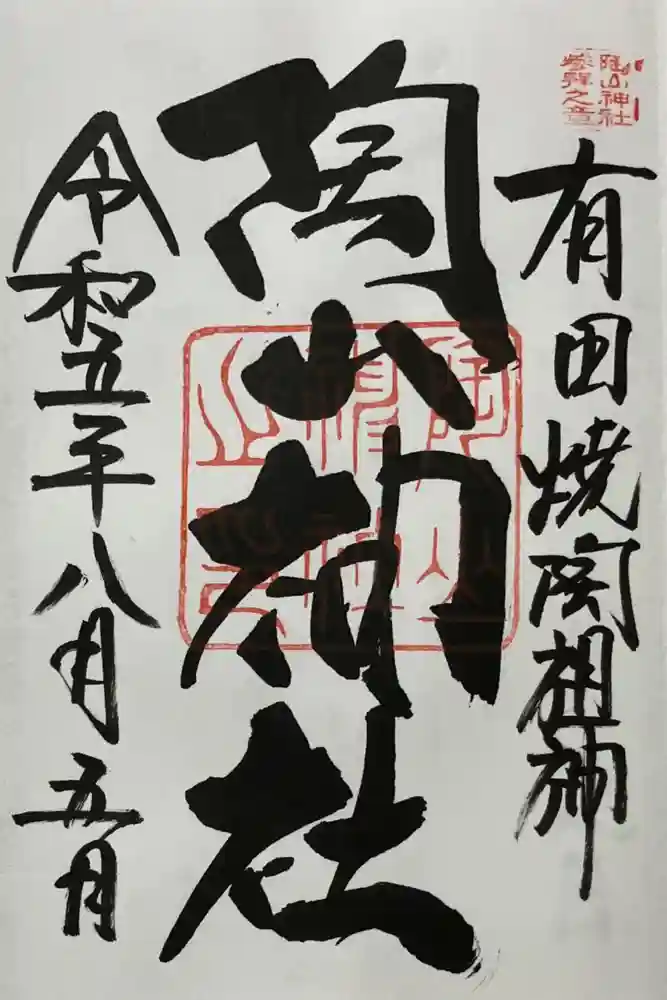 陶山神社
参拝之章
有田焼陶祖神
陶山神社
陶山
神社
之印
令和五年八月五日